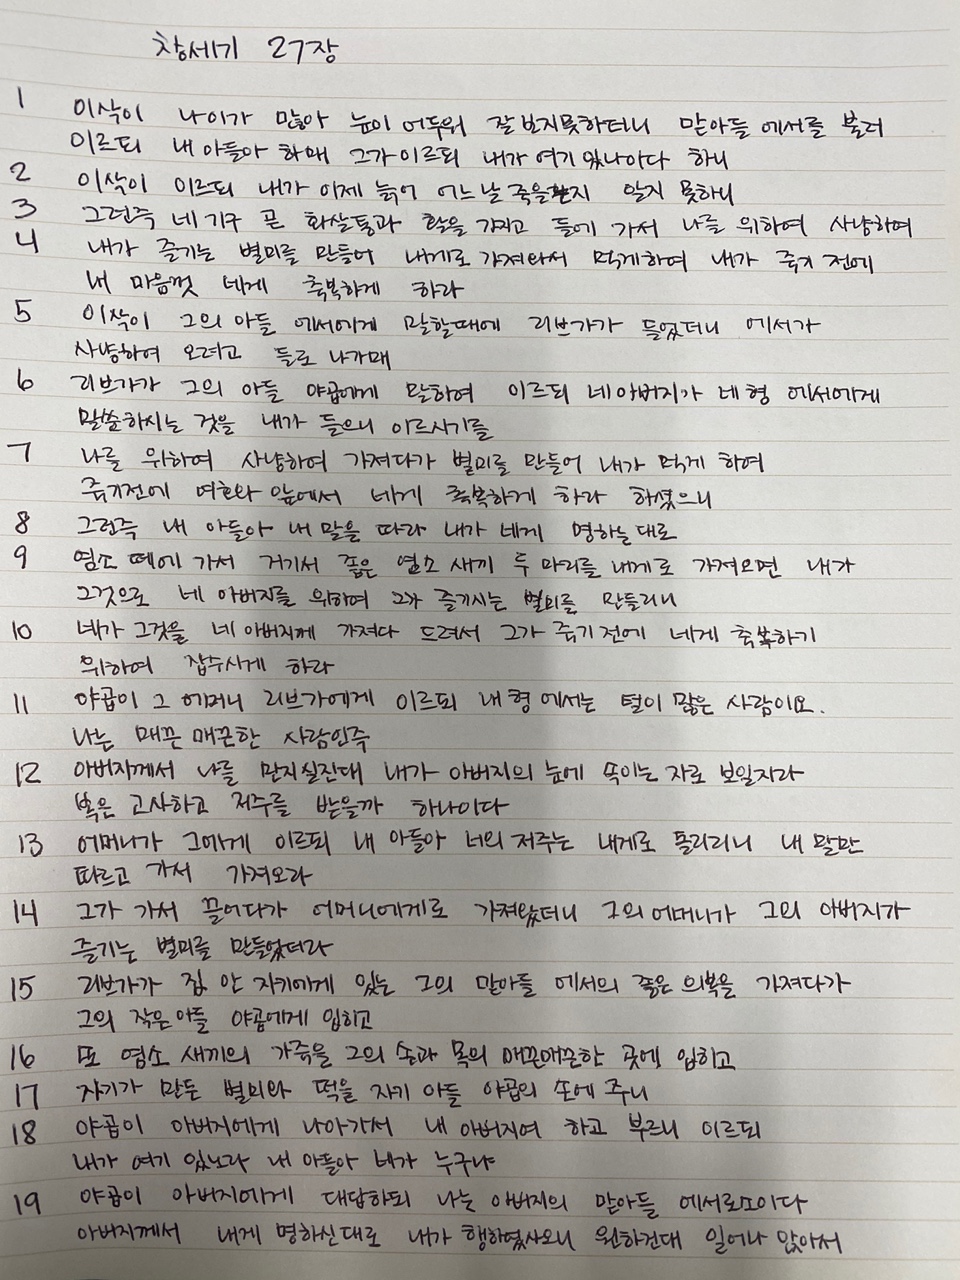 창세기 27장
1 이삭이 나이가 많아 눈이 어두워 잘 보지못하더니 맏아들 에서를 불러
이르되 내 아들아 하매 그가 이르되 내가 여기 있나이다 하니
2 이삭이 이르되 내가 이제 늙어 어느날 죽을지 알지 못하니
3 그런즉 네 기구 곧 화살통과 활을 가지고 들에 가서 나를 위하여 사냥하여
4 내가 즐기는 별미를 만들어 내게로 가져와서 먹게하여 내가 죽기 전에
내 마음껏 네게 축복하게 하라
5 이삭이 그의 아들 에서에게 말할때에 리브가가 들었더니 에서가
사냥하여 오려고 들로 나가매
6 리브가가 그의 아들 야곱에게 말하여 이르되 네 아버지가 네 형 에서에게
말씀하시는 것을 내가 들으니 이르시기를
7 나를 위하여 사냥하여 가져다가 별미를 만들어 내가 먹게 하여
죽기전에 여호와 앞에서 네게 축복하게 하라 하셨으니
8 그런즉 내 아들아 내 말을 따라 내가 네게 명하는 대로
9 염소 떼에 가서 거기서 좋은 염소 새끼 두 마리를 내게로 가져오면 내가
그것으로 네 아버지를 위하여 그가 즐기시는 별미를 만들리니
10 네가 그것을 네 아버지께 가져다 드려서 그가 죽기 전에 네게 축복하기
위하여 잡수시게 하라
11 야곱이 그 어머니 리브가에게 이르되 내 형 에서는 털이 많은 사람이요.
나는 매끈 매끈한 사람인즉
12 아버지께서 나를 만지실진대 내가 아버지의 눈에 속이는 자로 보일지라
복은 고사하고 저주를 받을까 하나이다
13 어머니가 그에게 이르되 내 아들아 너의 저주는 내게로 돌리리니 내 말만
따르고 가서 가져오라
14 그가 가서 끌어다가 어머니에게로 가져왔더니 그의 어머니가 그의 아버지가
즐기는 별미를 만들었더라
15 리브가가 집 안 자기에게 있는 그의 맏아들 에서의 좋은 의복을 가져다가
그의 작은 아들 야곱에게 입히고
16 또 염소 새끼의 가죽을 그의 손과 목의 매끈매끈한 곳에 입히고
17 자기가 만든 별미와 떡을 자기 아들 야곱의 손에 주니
18 야곱이 아버지에게 나아가서 내 아버지여 하고 부르니 이르되
내가 여기 있노라 내 아들아 네가 누구냐
19 야곱이 아버지에게 대답하되 나는 아버지의 맏아들 에서로소이다
아버지께서 내게 명하신대로 내가 행하였사오니 원하건대 일어나 앉아서